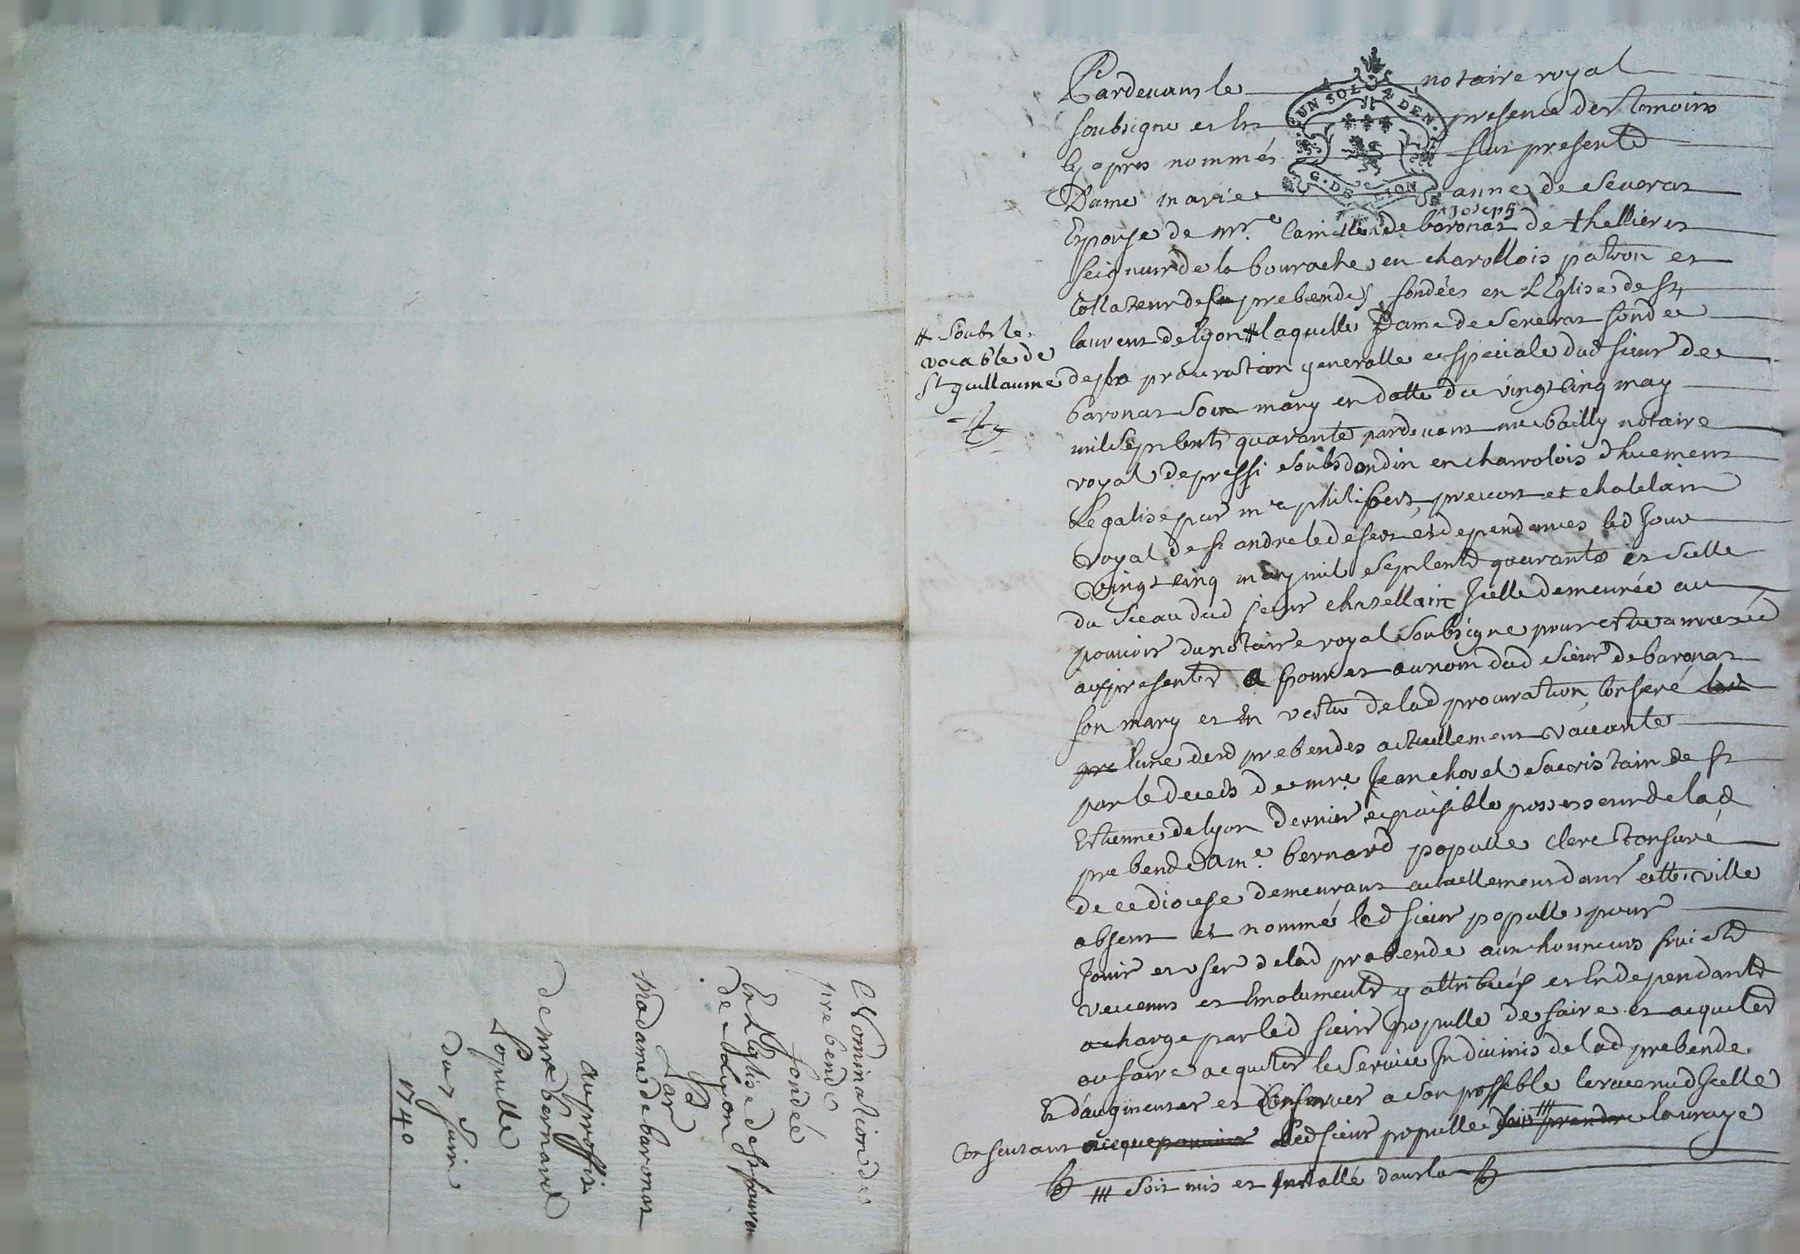 Pardevant le notaire royal
soubsigné et En presence des temoins
cy apres nommés fut presente
Dame marie anne de Severat
Epouse de mr.e Camille Joseph de baronat de thellieres
seigneur de la bourache en charollois patron et
Collateur des prebendes fondées en L'Eglise de st
laurent de lyon # laquelle Dame de Severat fondée
# Soubs le
vocable de
st guillaume
de sa procuration generalle et speciale dud sieur de
baronat son mary en datte du vingt cinq may
mil sept cents quarante pardevant me bailly notaire
royal de pressi soubs dondin en charolois dhuement
Legalisé par me philibert prevost et chatelain
royal de st andre le desert et dependances led Jour
vingt cinq may mil sept cents quarante et scellé
du sceau dud sieur chatellain Icelle demeurée au
pouvoir du notaire royal soubsigné pour etre annexée
aux presentes a pour et au nom dud sieur de baronat
son mary et En vertu de lad procuration conferé
lune desd prebendes actuellement vacante
par le deceds de mre Jean chovel sacristain de st
Estienne de lyon dernier et paisible possesseur de lad
prebende a me bernard populle clerc tonsuré
de ce diocese demeurant actuellement dans cette ville
absent et nommé led sieur populle pour
Jouir et user de lad prebende aux honneurs fruicts
revenus et Emoluments y attribués et En dependants
a charge par led sieur populle de faire et acquiter
ou faire acquiter le service In divinis de lad prebende
Et d'augmenter et Conserver a son possible les revenus d'Icelle
Consentant led sieur populle soit prendre la vraye
### soit mis et Installé dans la
Nomination de
prebende
fondée
En L'Eglise de st laurent
de Lyon
Par
Madame de baronat
au proffit
de mre bernard
Populle
du 2 Juin
1740
UN SOL 2 DEN.
G. DE LION